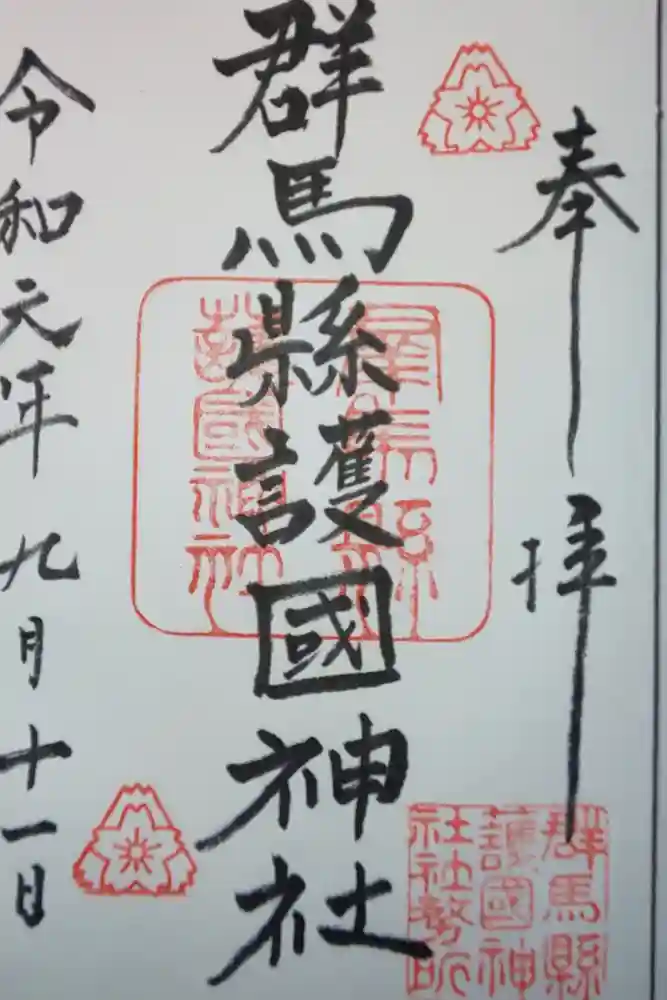 奉拝
群馬縣護國神社
群馬縣
護國神社
令和元年九月十一日
群馬縣
護國神
社社務所